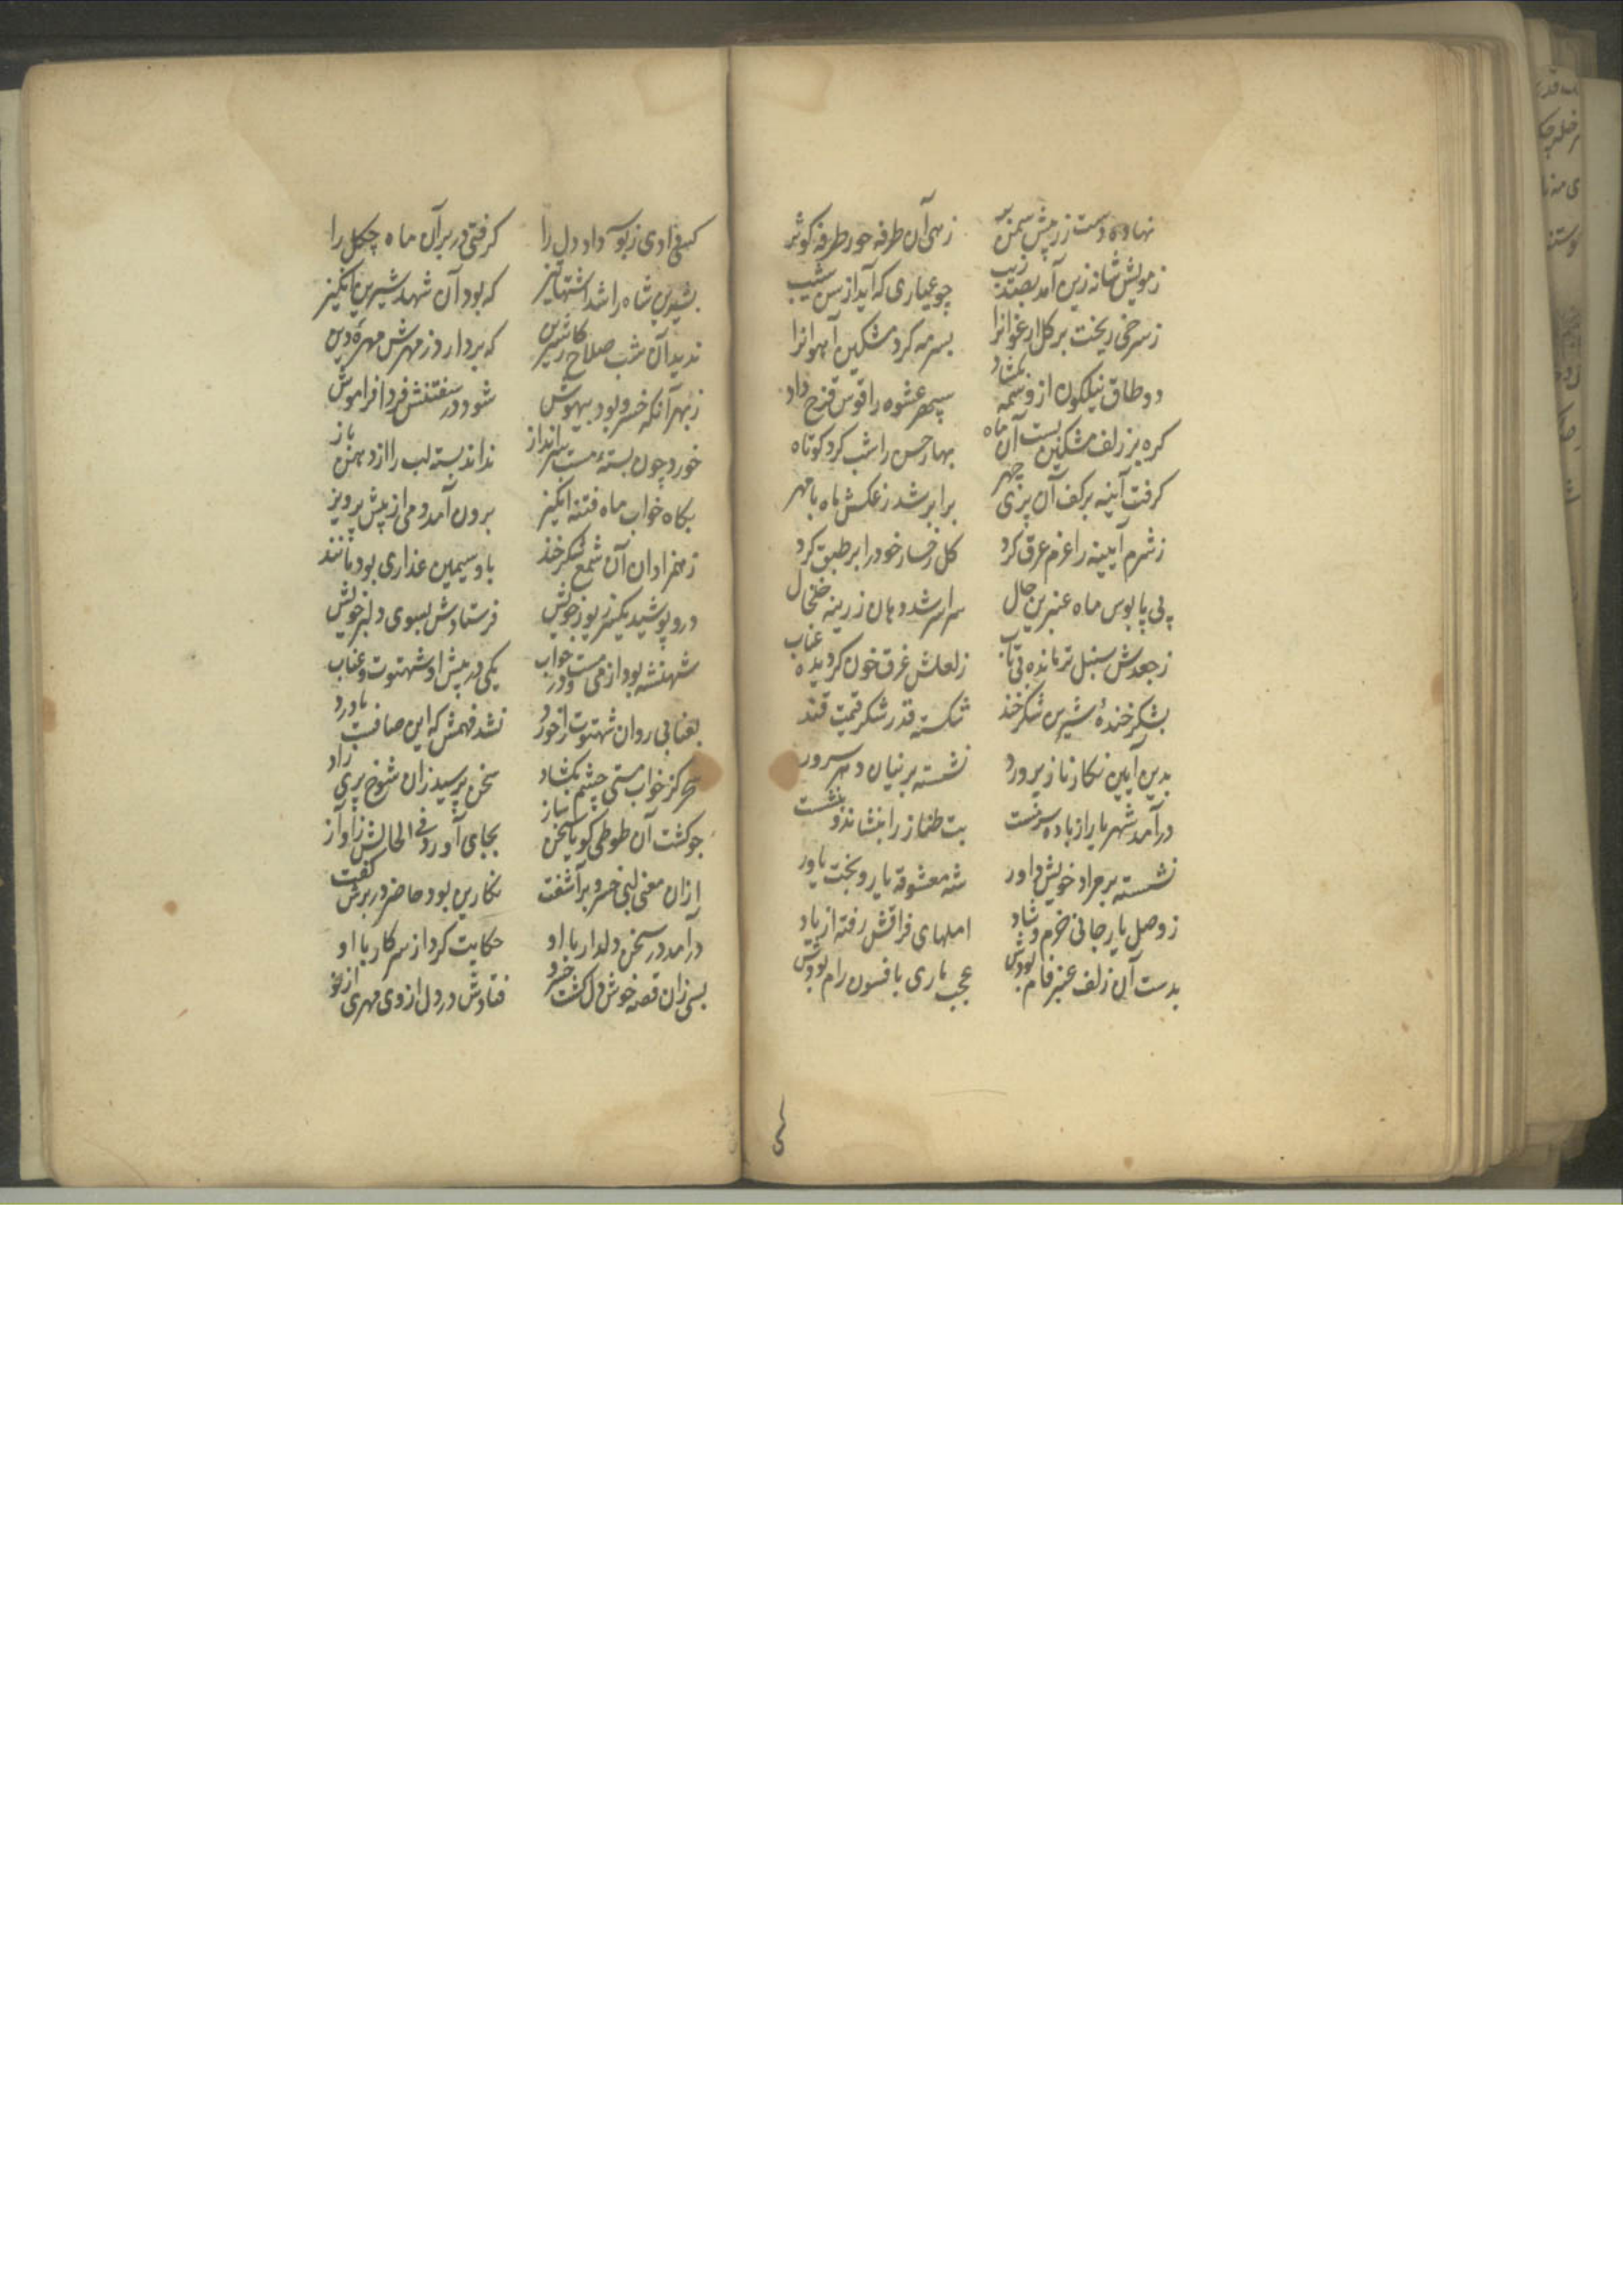 نهاده دست زر پیش سمن بر زهی آن طرفه حور طرفه کوثر
ز مویش شانه زین آمد بصد زیب چو عیاری که آید از سن شیب
ز سرخی ریخت بر کل ارغوانرا بسرمه کرد مشکین آهوانرا
دو طاق نیلکون از وسمه بکشاد سپهر عشوه را قوس قزح داد
کره بر زلف مشکین بست آن ماه بهار حسن را شب کرد کوتاه
کرفت آینه بر کف آن پری چهر برابر شد ز عکسش ماه با مهر
ز شرم آیینه را غرم عرق کرد کل رخسار خود را بر طبق کرد
پی پا بوس ماه عنبرین خال سراسر شد دهان زرینه خلخال
ز جعدش سنبل تر مانده بی تاب ز لعلش غرق خون کردیده عناب
بشکر خندهٔ شیرین شکر خند شکسته قدر شکر قیمت قند
بدین آیین نکار ناز پرورد نشسته بر نیان
درآمد شهریار از باده سرمست بت طناز را بنشاند و بنشست
نشسته بر مراد خویش داور شه معشوقه یار و بخت یاور
ز وصل یار جانی خرم و شاد املهای فراقش رفته از یاد
بدست آن زلف عنبر فام بودش عجب ماری بافسون رام بودش
کهی دادی ز بوسه داد دل را کرفتی در بر آن ماه چکل را
بشیرین شاه را شد اشتها تیز که بود آن شهد شیرین انکیز
ندید آن شب صلاح کار شیرین که بردارد ز مهرش مهرهٔ دین
ز بهر آنکه خسرو بود بیهوش شود در سفتنش فردا فراموش
خورد چون بسته مست سرانداز نداند بسته لب را از دهن باز
بکاه خواب ماه فتنه انکیز برون آمد دمی از پیش پرویز
ز همزادان آن شمع شکر خند باو سیمین عذاری بود مانند
درو پوشید یکسر زیور خویش فرستادش بسوی دلبر خویش
شهنشه بود از می مست و در خواب یکی در پیش او شهتوت و عناب
بعنابی روان شهتوت را خورد نشد فهمش که این صافست یا درد
سحر کز خواب مستی چشم بکشاد سخن پرسید زان شوخ پری زاد
چو کشت آن طوطی کویا سخن ساز بجای آورد فی الحالش ز آواز
ازان معنی خسرو برآشفت نکارین بود حاضر در برش کفت
درآمد در سخن دلدار با او حکایت کرد از سر کار با او
بسی زان قصه خوش دل کشت خسرو فتادش در دل از وی مهری از نو